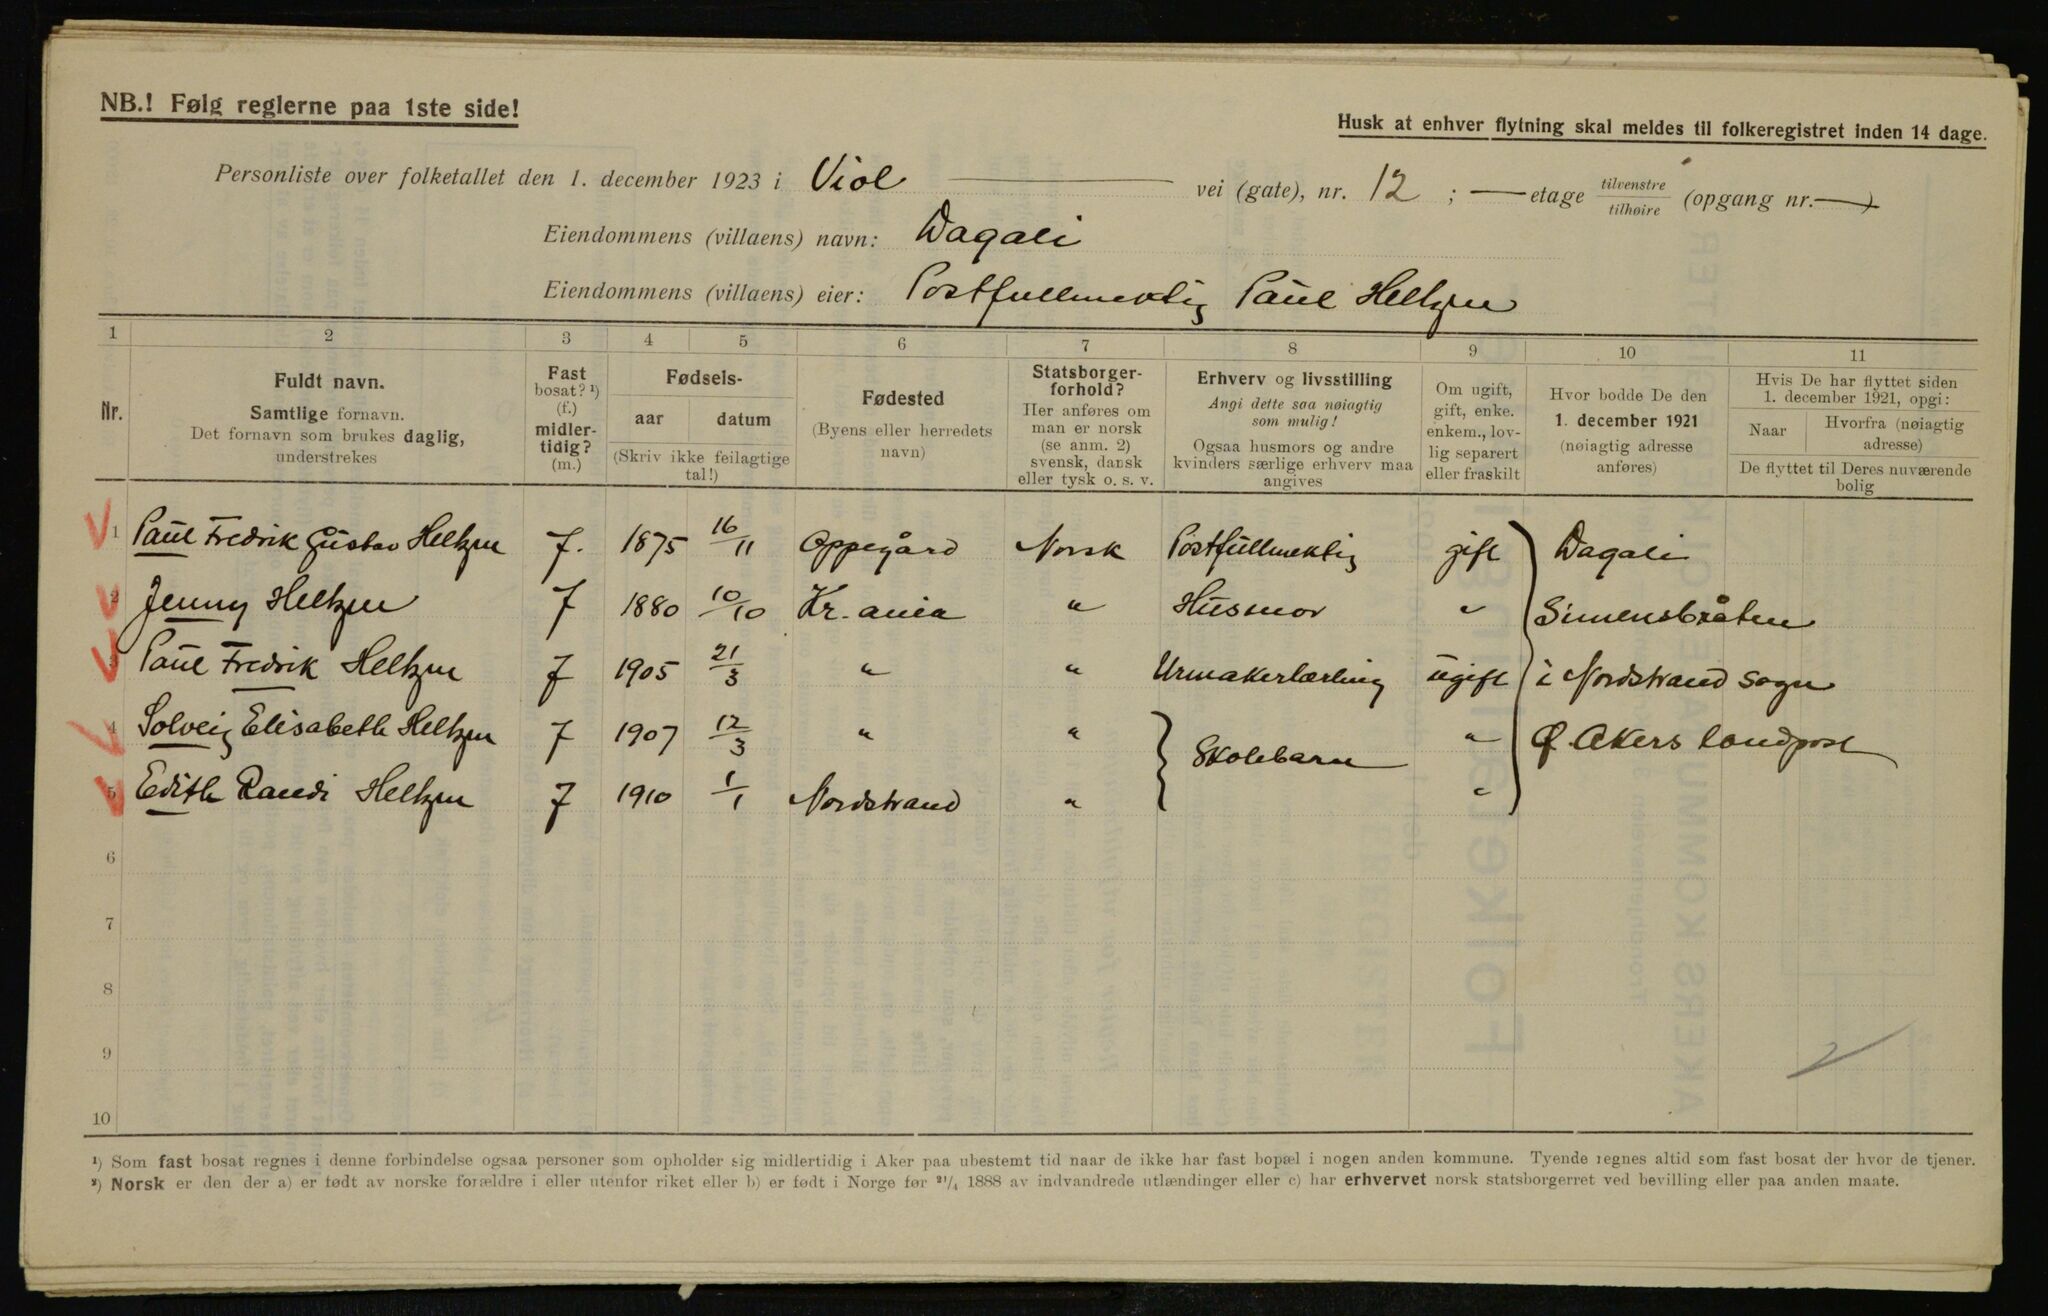 NB.! Følg reglerne paa 1ste side!
Husk at enhver flytning skal meldes til folkeregistret inden 14 dage.
Personliste over folketallet den 1. december 1923 i Viol vei (gate), nr. 12 ; — etage tilvenstre tilhøire (opgang nr. —)
Eiendommens (villaens) navn: Dagali
Eiendommens (villaens) eier: Postfullmektig Paul Heltzen
1 2 3 4 5 6 7 8 9 10 11
Nr.
Fuldt navn.
Samtlige fornavn.
Det fornavn som brukes daglig,
understrekes
Fast
bosat? ¹)
(f.)
midler-
tidig?
(m.)
Fødsels-
aar datum
(Skriv ikke feilagtige
tal!)
Fødested
(Byens eller herredets
navn)
Statsborger-
forhold?
Her anføres om
man er norsk
(se anm. 2)
svensk, dansk
eller tysk o. s. v.
Erhverv og livsstilling
Angi dette saa nøiagtig
som mulig!
Ogsaa husmors og andre
kvinders særlige erhverv maa
angives
Om ugift,
gift, enke.
enkem., lov-
lig separert
eller fraskilt
Hvor bodde De den
1. december 1921
(nøiagtig adresse
anføres)
Hvis De har flyttet siden
1. december 1921, opgi:
Naar
Hvorfra (nøiagtig
adresse)
De flyttet til Deres nuværende
bolig
1 Paul Fredrik Gustav Heltzen f. 1875 16/11 Oppegård Norsk Postfullmektig gift Dagali
2 Jenny Heltzen f 1880 10/10 Kr.ania " Husmor " Simensbråten
3 Paul Fredrik Heltzen f 1905 21/3 " " Urmakerlærling ugift i Nordstrand sogn
4 Solveig Elisabeth Heltzen f 1907 12/3 " " Skolebarn " Ø. Akers landpost
5 Edith Randi Heltzen f 1910 1/1 Nordstrand " "
6
7
8
9
10
¹) Som fast bosat regnes i denne forbindelse ogsaa personer som opholder sig midlertidig i Aker paa ubestemt tid naar de ikke har fast bopæl i nogen anden kommune. Tyende regnes altid som fast bosat der hvor de tjener.
²) Norsk er den der a) er født av norske forældre i eller utenfor riket eller b) er født i Norge før ²¹/₄ 1888 av indvandrede utlændinger eller c) har erhvervet norsk statsborgerret ved bevilling eller paa anden maate.